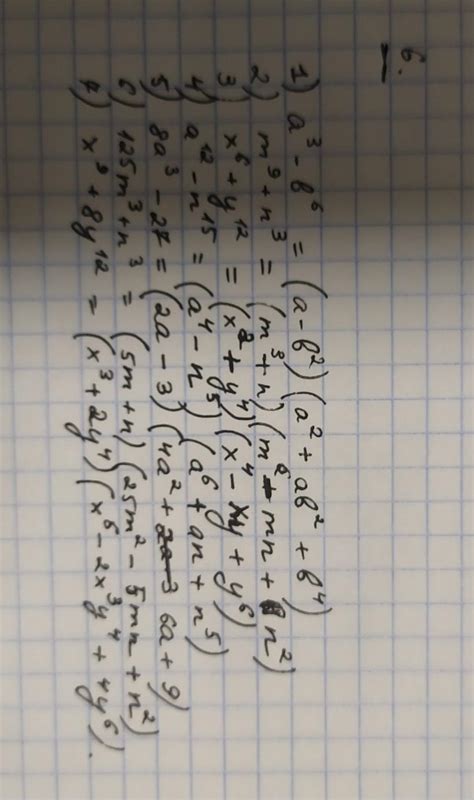 6.
1) a³ - b⁶ = (a - b²)(a² + ab² + b⁴)
2) m⁹ + n³ = (m³ + n)(m⁶ - mn + n²)
3) x⁶ + y¹² = (x² + y⁴)(x⁴ - xy + y⁶)
4) a¹² - n¹⁵ = (a⁴ - n⁵)(a⁶ + an + n⁵)
5) 8a³ - 27 = (2a - 3)(4a² + 6a + 9)
6) 125m³ + n³ = (5m + n)(25m² - 5mn + n²)
7) x⁹ + 8y¹² = (x³ + 2y⁴)(x⁶ - 2x³y⁴ + 4y⁶).